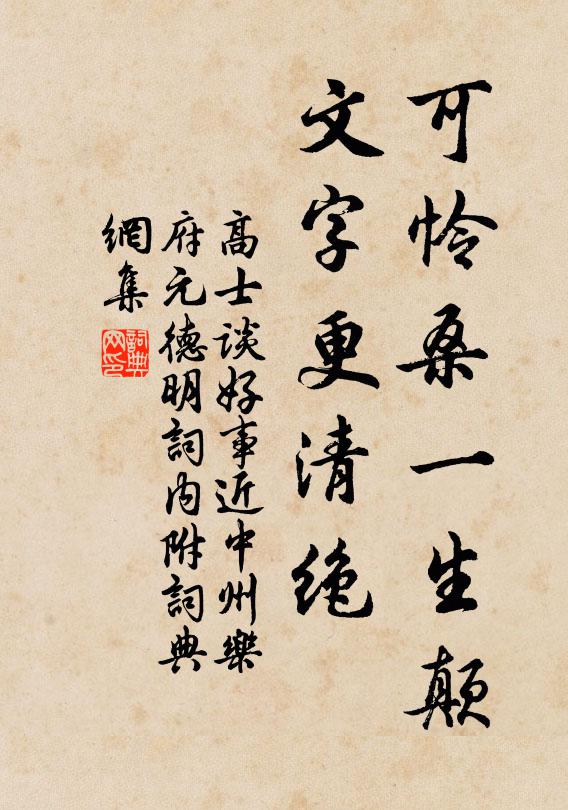 可怜桑一生颠
文字更清绝
高士谈好事近中州樂
府元德明詞内附詞典
網集
詞典
网印